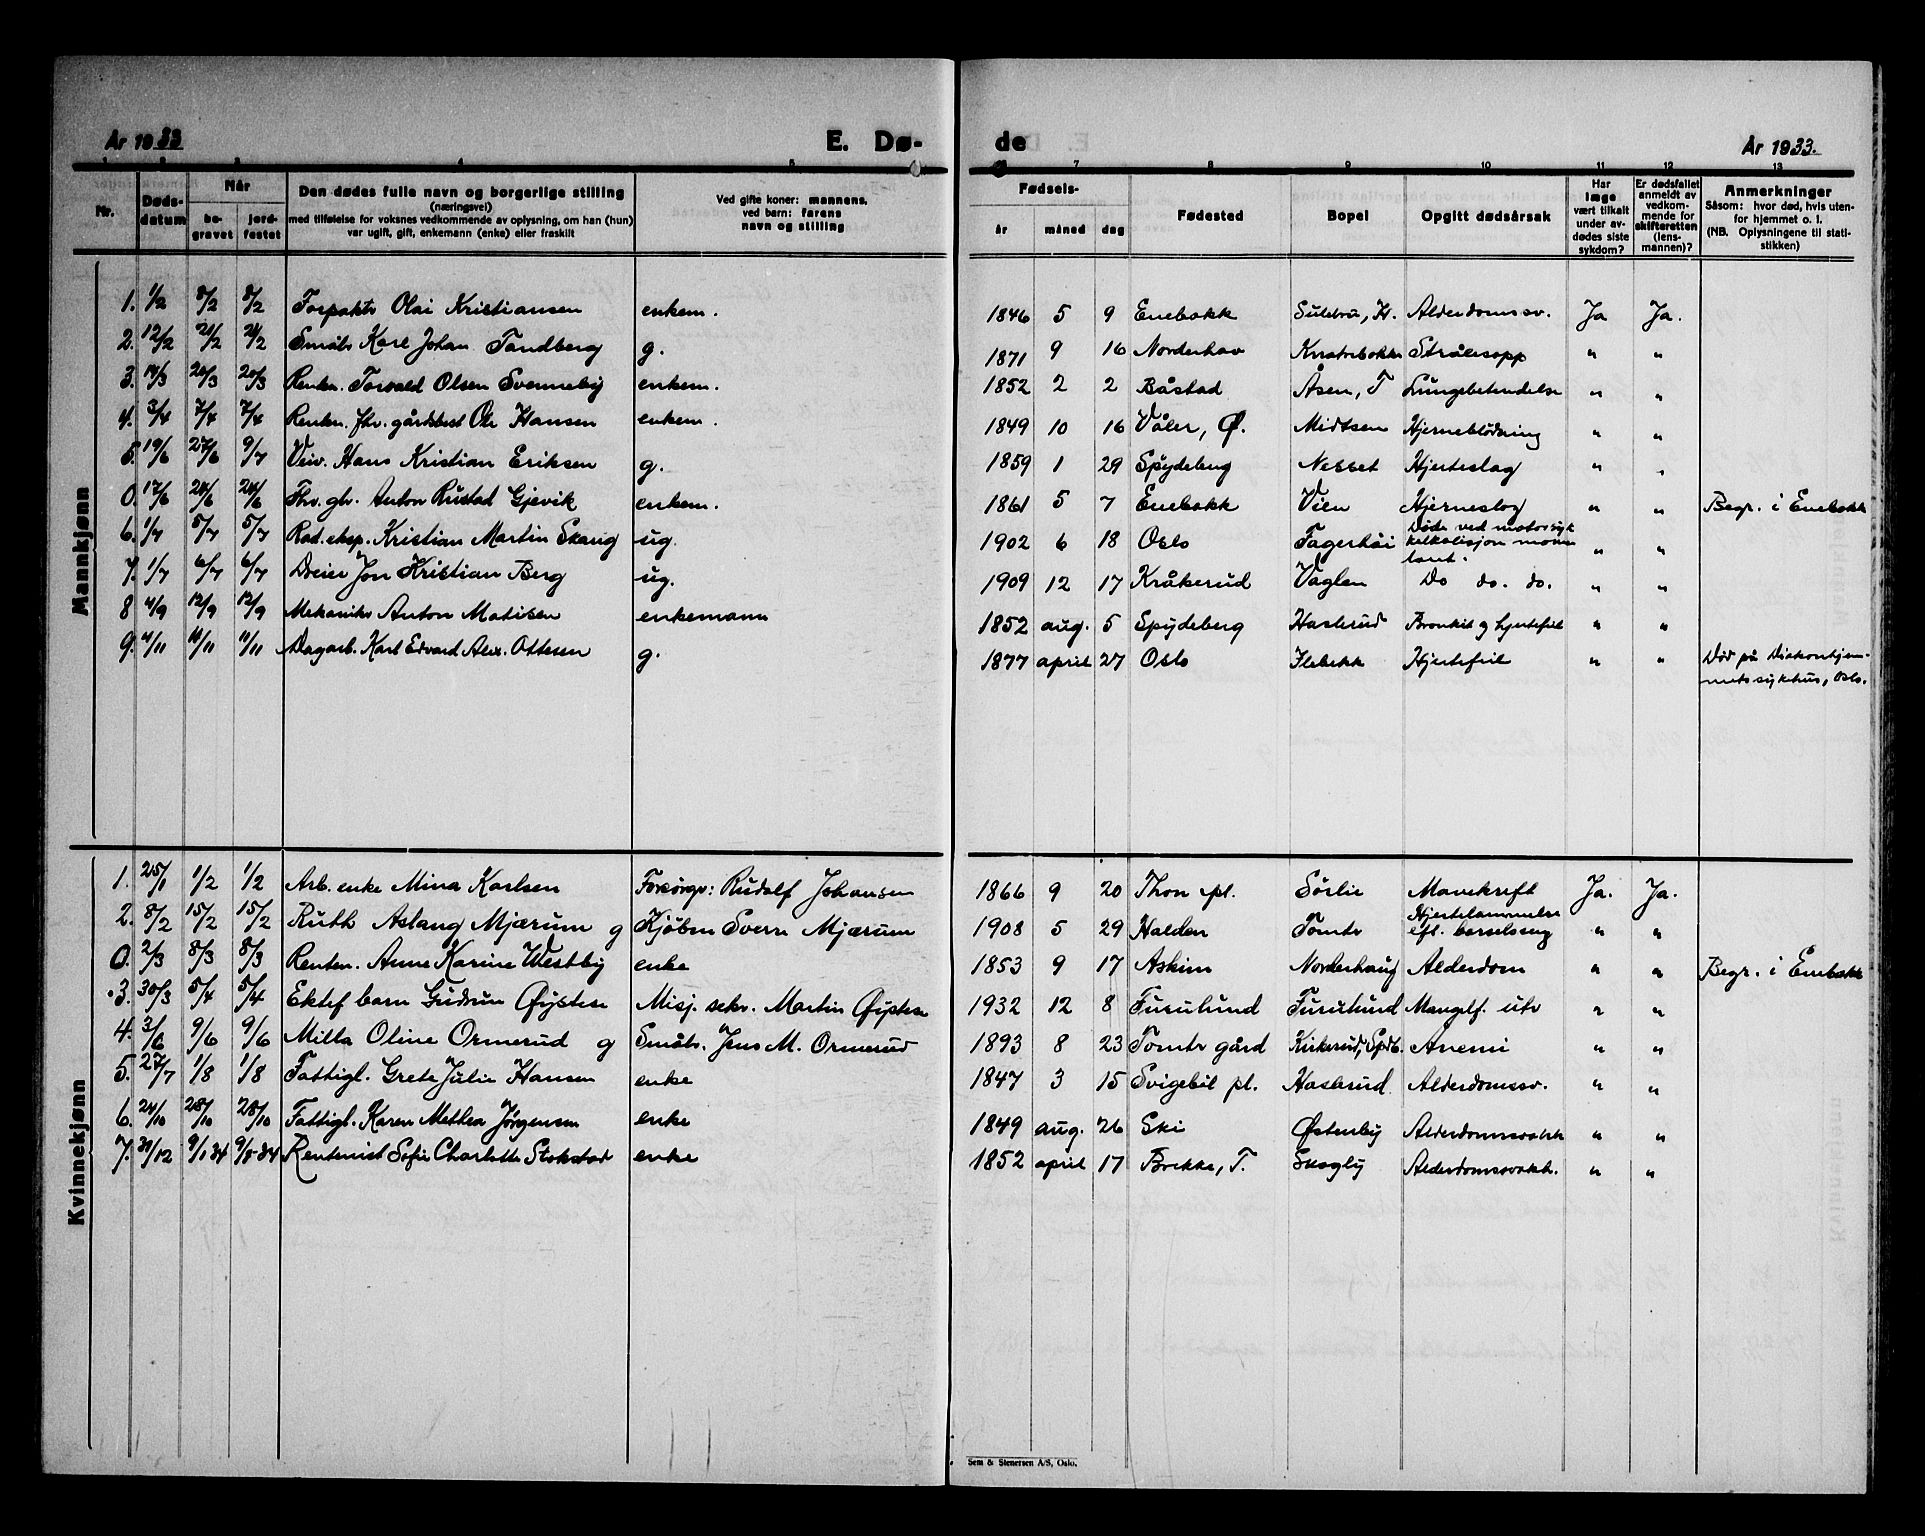 År 1933
E. Dø-
de
År 1933.
1 2 3 4 5
6 7 8 9 10 11 12 13
Nr.
Døds-
datum
Når
be-
gravet
jord-
festet
Den dødes fulle navn og borgerlige stilling
(næringsvei)
med tilføielse for voksnes vedkommende av oplysning, om han (hun)
var ugift, gift, enkemann (enke) eller fraskilt
Ved gifte koner: mannens,
ved barn: farens
navn og stilling
Fødsels-
år måned dag
Fødested
Bopel
Opgitt dødsårsak
Har
læge
vært tilkalt
under av-
dødes siste
sykdom?
Er dødsfallet
anmeldt av
vedkom-
mende for
skifteretten
(lens-
mannen)?
Anmerkninger
Såsom: hvor død, hvis uten-
for hjemmet o. l.
(NB. Oplysningene til stati-
stikken)
Mannkjønn
1. 1/2 8/2 8/2 Forpakt. Olai Kristiansen enkem. 1846 5 9 Enebakk H. Alderdomssv. Ja Ja.
2. 12/2 21/2 21/2 Småbr. Karl Johan Tandberg g. 1871 9 16 Norderhov Strålesopp " "
3. 14/3 20/3 20/3 Renten. Torvald Olsen Svenneby enkem. 1852 2 2 Båstad Åsen, T Lungebetendelse " "
4. 3/4 7/4 7/4 Renten. fhv. gårdbest Ole Hansen enkem. 1849 10 16 Våler, Ø. Midtsen Hjerneblödning " "
5. 19/6 27/6 9/7 Veiv. Hans Kristian Eriksen g. 1859 1 29 Spydeberg Nesset Hjerteslag " "
0. 17/6 24/6 24/6 Fhv. gbr. Anton Rustad Gjevik enkem. 1861 5 7 Enebakk Vien Hjerneslag " " Begr. i Enebakk
6. 1/7 5/7 5/7 Rad. eksp. Kristian Martin Skaug ug. 1902 6 18 Oslo Fagerhøi Døde ved motorsyk
kelkolisjon momen
tant. " "
7. 1/7 6/7 6/7 Dreier Jon Kristian Berg ug. 1909 12 17 Kråkerud Vaglen Do do. do. " "
8 4/9 12/9 12/9 Mekaniker Anton Matisen enkemann 1852 aug. 5 Spydeberg Haslerud Bronkit og hjertefeil " "
9. 4/11 11/11 11/11 Dagarb. Karl Edvard Alex. Ottesen g. 1877 april 27 Oslo Flebekk Hjertefeil " " Död på Diakonhjem-
mets sykehus, Oslo.
Kvinnekjønn
1. 25/1 1/2 1/2 Arb. enke Mina Karlsen Forsörger: Rudolf Johansen 1866 9 20 Thon pl. Sörlie Mavekreft Ja. Ja.
2. 8/2 15/2 15/2 Ruth Aslaug Mjærum g Kjöbm Sverre Mjærum 1908 5 29 Halden Tomter Hjertelammelse
eft. barselseng " "
0. 2/3 8/3 8/3 Renten. Anne Karine Westby enke 1853 9 17 Askim Norderhaug Alderdom " " Begr. i Enebakk
3. 30/3 5/4 5/4 Ektef barn Gudrun Øystese Misj. sekr. Martin Øystese 1932 12 8 Furulund Furulund Mangelf. utv " "
4. 3/6 9/6 9/6 Milla Oline Ormerud g Småbr. Jens M. Ormerud 1893 8 23 Tomter gård Kirkerud, Spdb. Anemi " "
5. 27/7 1/8 1/8 Fattigl. Grete Julie Hansen enke 1847 3 15 Svigebil pl. Haslerud Alderdomssv. " "
6. 24/10 28/10 28/10 Fattigl. Karen Mathea Jörgensen enke 1849 aug. 26 Ski Østenby Alderdomssvakh " "
7. 31/12 9/1 34 9/1-34 Rentenist Sofie Charlotte Stokstad enke 1852 april 17 Brekke, T. Skogly Alderdomssvakh. " "
Sem & Stenersen A/S, Oslo.